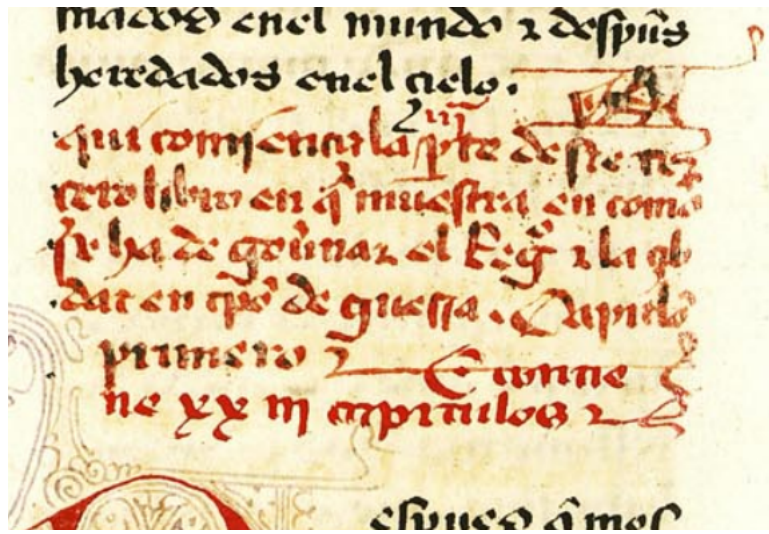 mados enel mundo ⁊ despũs
heredados enel cielo. A
qui comiença la iij̃ p̱te deste ter
cero libro en q̃ muestra en como
se ha de gouernar el Regño ⁊ la çib
dat en tp̃o de guerra. Capitulo
primero E contie
ne xx iij capitulos
espues q̃ mos